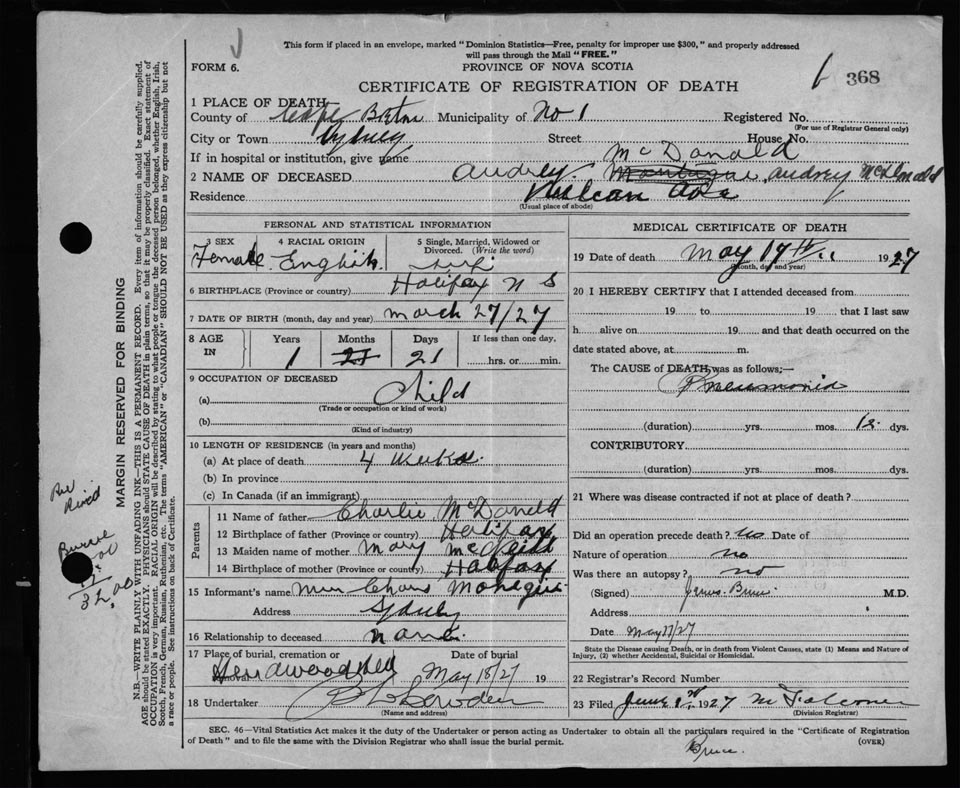 This form if placed in an envelope, marked "Dominion Statistics—Free, penalty for improper use $300," and properly addressed
will pass through the Mail "FREE."
FORM 6.
PROVINCE OF NOVA SCOTIA
CERTIFICATE OF REGISTRATION OF DEATH
368
1 PLACE OF DEATH
County of Cape Breton Municipality of No 1 Registered No.
(For use of Registrar General only)
City or Town Sydney Street House No.
If in hospital or institution, give name
McDonald
2 NAME OF DECEASED Audrey Audrey McDonald
Residence Ave
(Usual place of abode)
PERSONAL AND STATISTICAL INFORMATION
3 SEX 4 RACIAL ORIGIN 5 Single, Married, Widowed or Divorced. (Write the word)
Female English
6 BIRTHPLACE (Province or country) Halifax N S
7 DATE OF BIRTH (month, day and year) March 27/27
8 AGE IN Years Months Days If less than one day,
1 21 21 hrs. or min.
9 OCCUPATION OF DECEASED
(a) Child
(Trade or occupation or kind of work)
(b)
(Kind of industry)
10 LENGTH OF RESIDENCE (in years and months)
(a) At place of death 4 weeks
(b) In province
(c) In Canada (if an immigrant)
Parents
11 Name of father Charlie McDonald
12 Birthplace of father (Province or country) Halifax
13 Maiden name of mother Mary
14 Birthplace of mother (Province or country) Halifax
15 Informant's name Chars
Address Sydney
16 Relationship to deceased none
17 Place of burial, cremation or Date of burial
May 18/27 19
18 Undertaker
(Name and address)
MEDICAL CERTIFICATE OF DEATH
19 Date of death May 17th 1927
(Month, day and year)
20 I HEREBY CERTIFY that I attended deceased from
19 to 19 that I last saw
h alive on 19 and that death occurred on the
date stated above, at m.
The CAUSE of DEATH was as follows;—
Pneumonia
(duration) yrs. mos. 12 dys.
CONTRIBUTORY.
(duration) yrs. mos. dys.
21 Where was disease contracted if not at place of death?
Did an operation precede death? no Date of
Nature of operation no
Was there an autopsy? no
(Signed) Bruce M.D.
Address
Date May 17/27
State the Disease causing Death, or in death from Violent Causes, state (1) Means and Nature of
Injury, (2) whether Accidental, Suicidal or Homicidal.
22 Registrar's Record Number
23 Filed June 1927
(Division Registrar)
SEC. 46—Vital Statistics Act makes it the duty of the Undertaker or person acting as Undertaker to obtain all the particulars required in the "Certificate of Registration
of Death" and to file the same with the Division Registrar who shall issue the burial permit.
(OVER)
Bruce.
MARGIN RESERVED FOR BINDING
N.B.—WRITE PLAINLY WITH UNFADING INK—THIS IS A PERMANENT RECORD. Every item of information should be carefully supplied.
AGE should be stated EXACTLY. PHYSICIANS should STATE CAUSE OF DEATH in plain terms, so that it may be properly classified. Exact statement of
OCCUPATION is very important. RACIAL ORIGIN will be described by stating to what people or tongue the deceased person belonged, whether English, Irish,
Scotch, French, German, Russian, Ruthenian, etc. The terms "AMERICAN" or "CANADIAN" SHOULD NOT BE USED as they express citizenship but not
a race or people. See instructions on back of Certificate.